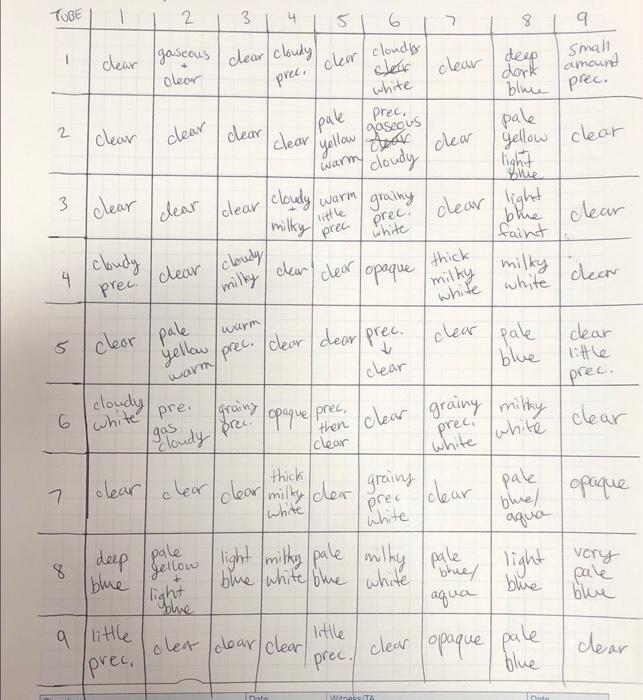 TUBE 1 2 3 4 5 6 7 8 9
1 clear gaseous + clear clear cloudy prec. clear cloudy clear white clear deep dark blue small amount prec.
2 clear clear clear clear pale yellow warm prec. gaseous clear cloudy clear pale yellow + light blue clear
3 clear clear clear cloudy + milky warm little prec. grainy prec. white clear light blue faint clear
4 cloudy prec. clear cloudy milky clear clear opaque thick milky white milky white clear
5 clear pale yellow warm warm prec. clear clear prec. ↓ clear clear pale blue clear little prec.
6 cloudy white pre. gas cloudy grainy prec. opaque prec. then clear clear grainy prec. white milky white clear
7 clear clear clear thick milky white clear grainy prec white clear pale blue/ aqua opaque
8 deep blue pale yellow + light blue light blue milky white pale blue milky white pale blue/ aqua light blue very pale blue
9 little prec. clear clear clear little prec. clear opaque pale blue clear
Date Witness/TA Date